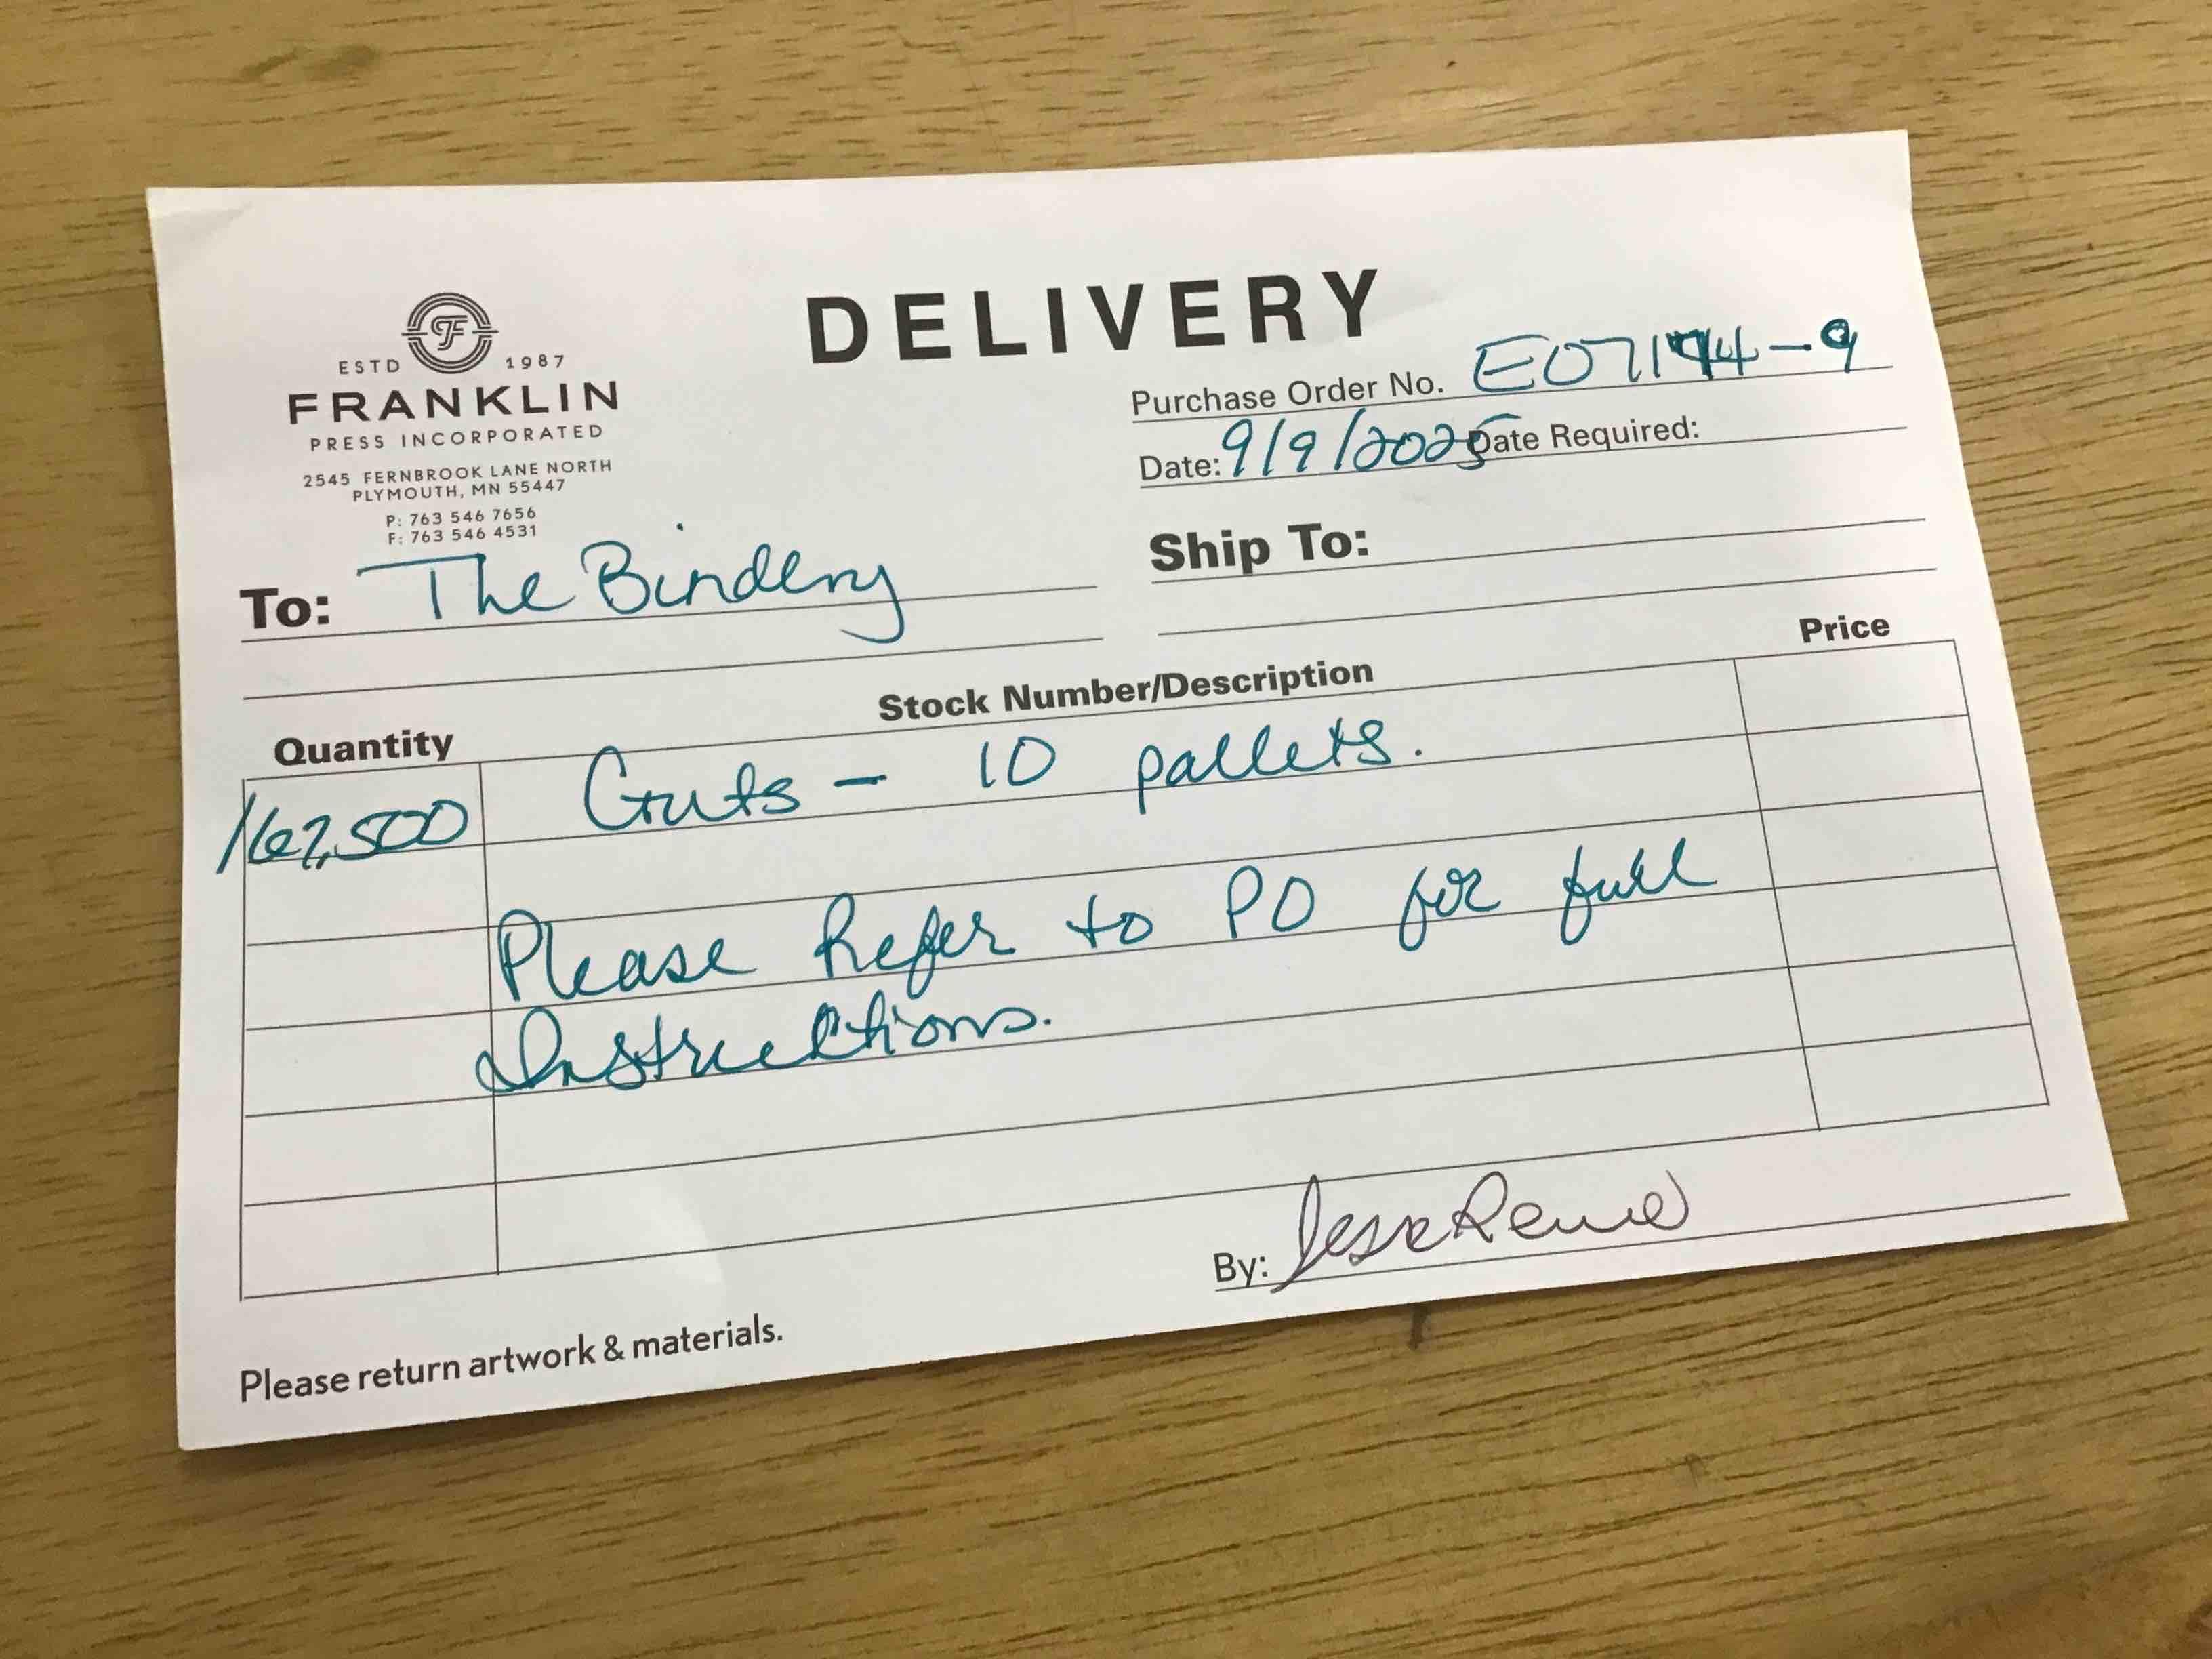 DELIVERY
F
ESTD 1987
FRANKLIN
PRESS INCORPORATED
2545 FERNBROOK LANE NORTH
PLYMOUTH, MN 55447
P: 763 546 7656
F: 763 546 4531
Purchase Order No.
Date: 9/9/2025 Date Required:
To: The Bindery
Ship To:
Quantity Stock Number/Description Price
Guts - 10 pallets.
Please Refer to PO for full
Instructions.
By:
Please return artwork & materials.